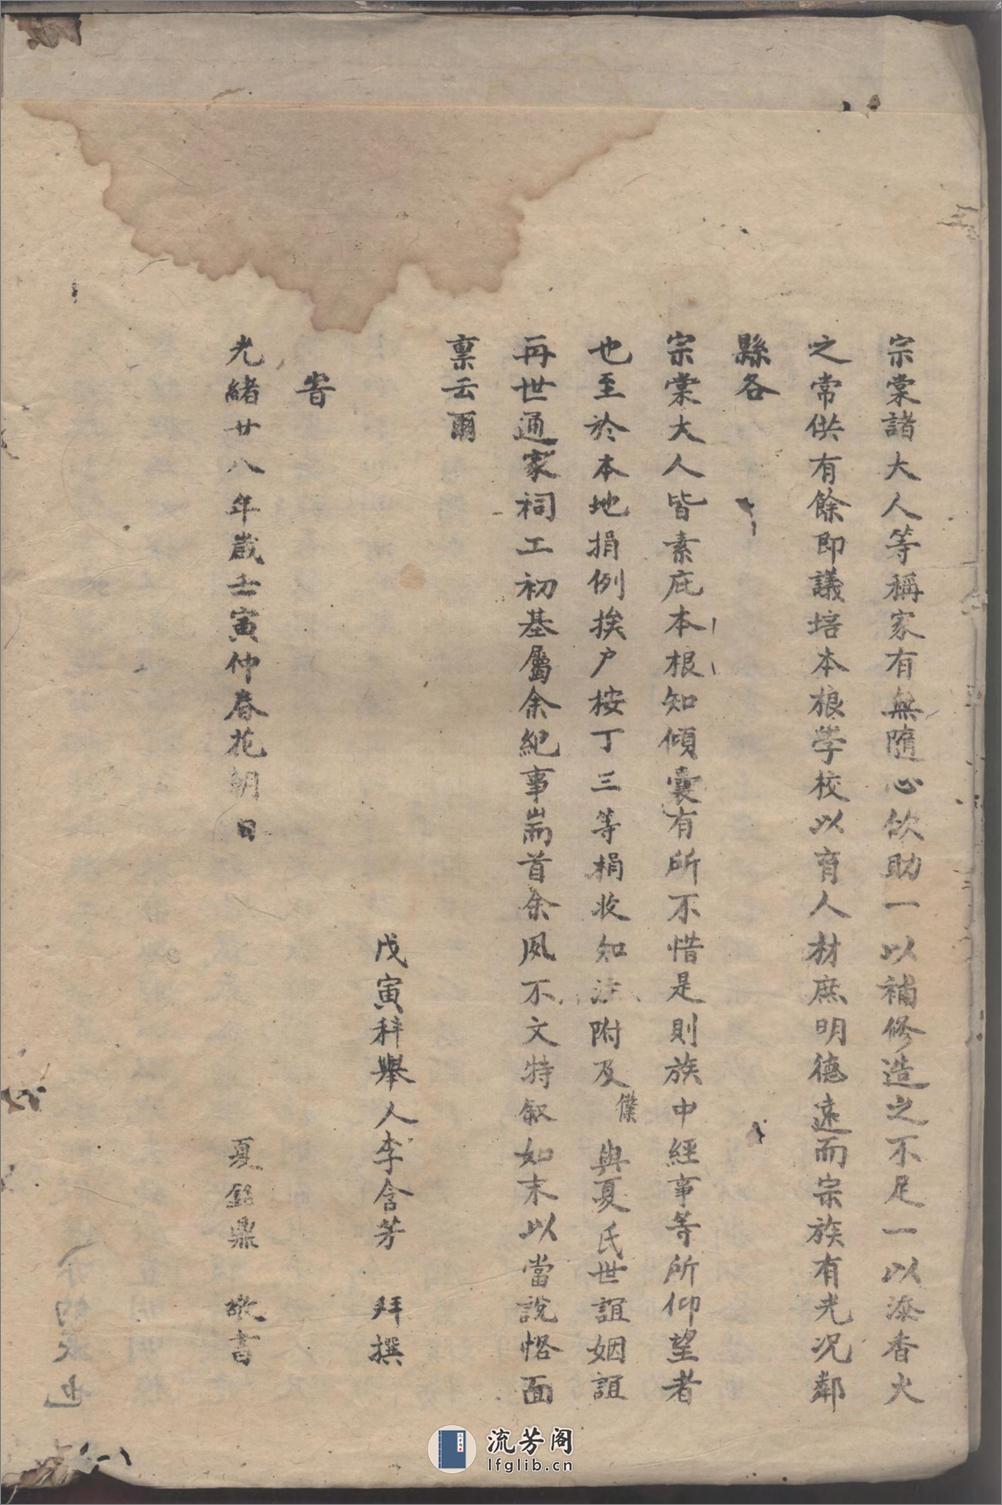 宗棠諸大人等稱家有無隨心佽助一以補修造之不足一以添香火
之常供有餘即議培本根學校以育人材庶明德遠而宗族有光况鄰
縣各
宗棠大人皆素庇本根知傾囊有所不惜是則族中經事等所仰望者
也至於本地捐例挨户按丁三等捐收知注附及僕與夏氏世誼姻誼
再世通家祠工初基屬余紀事耑首余夙不文特叙如末以當說悋面
禀云爾
戊寅科舉人李含芳 拜撰
旹
光緒廿八年歲壬寅仲春花朝日 夏銘鼎 敬書
流芳阁
lfglib.cn